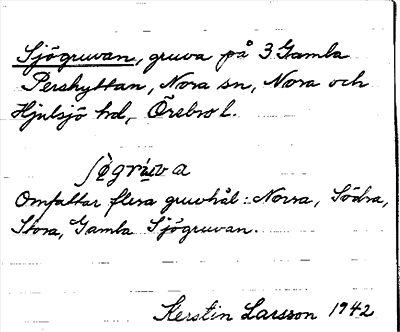 Sjögruvan, gruva på 3 Gamla
Pershyttan, Nora sn, Nora och
Hjulsjö hd, Örebro l.
ʃø̀gru̇va
Omfattar flera gruvhål: Norra, Södra,
Stora, Gamla Sjögruvan.
Kerstin Larsson 1942